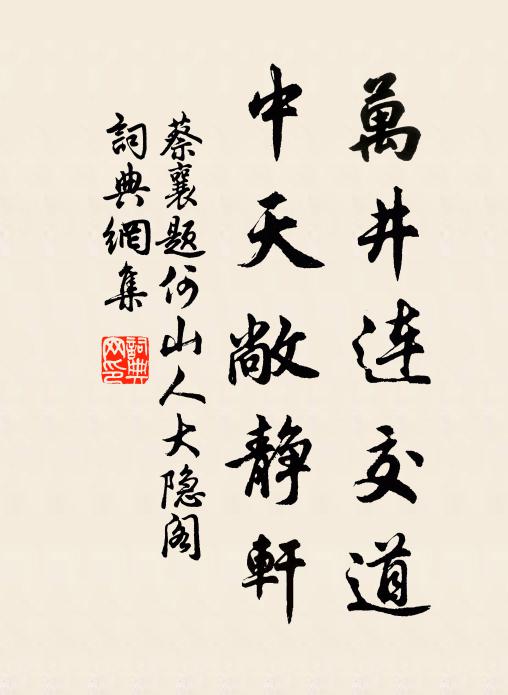 萬井連交道
中天敞静軒
蔡襄題何山人大隐阁
詞典網集
詞典网印